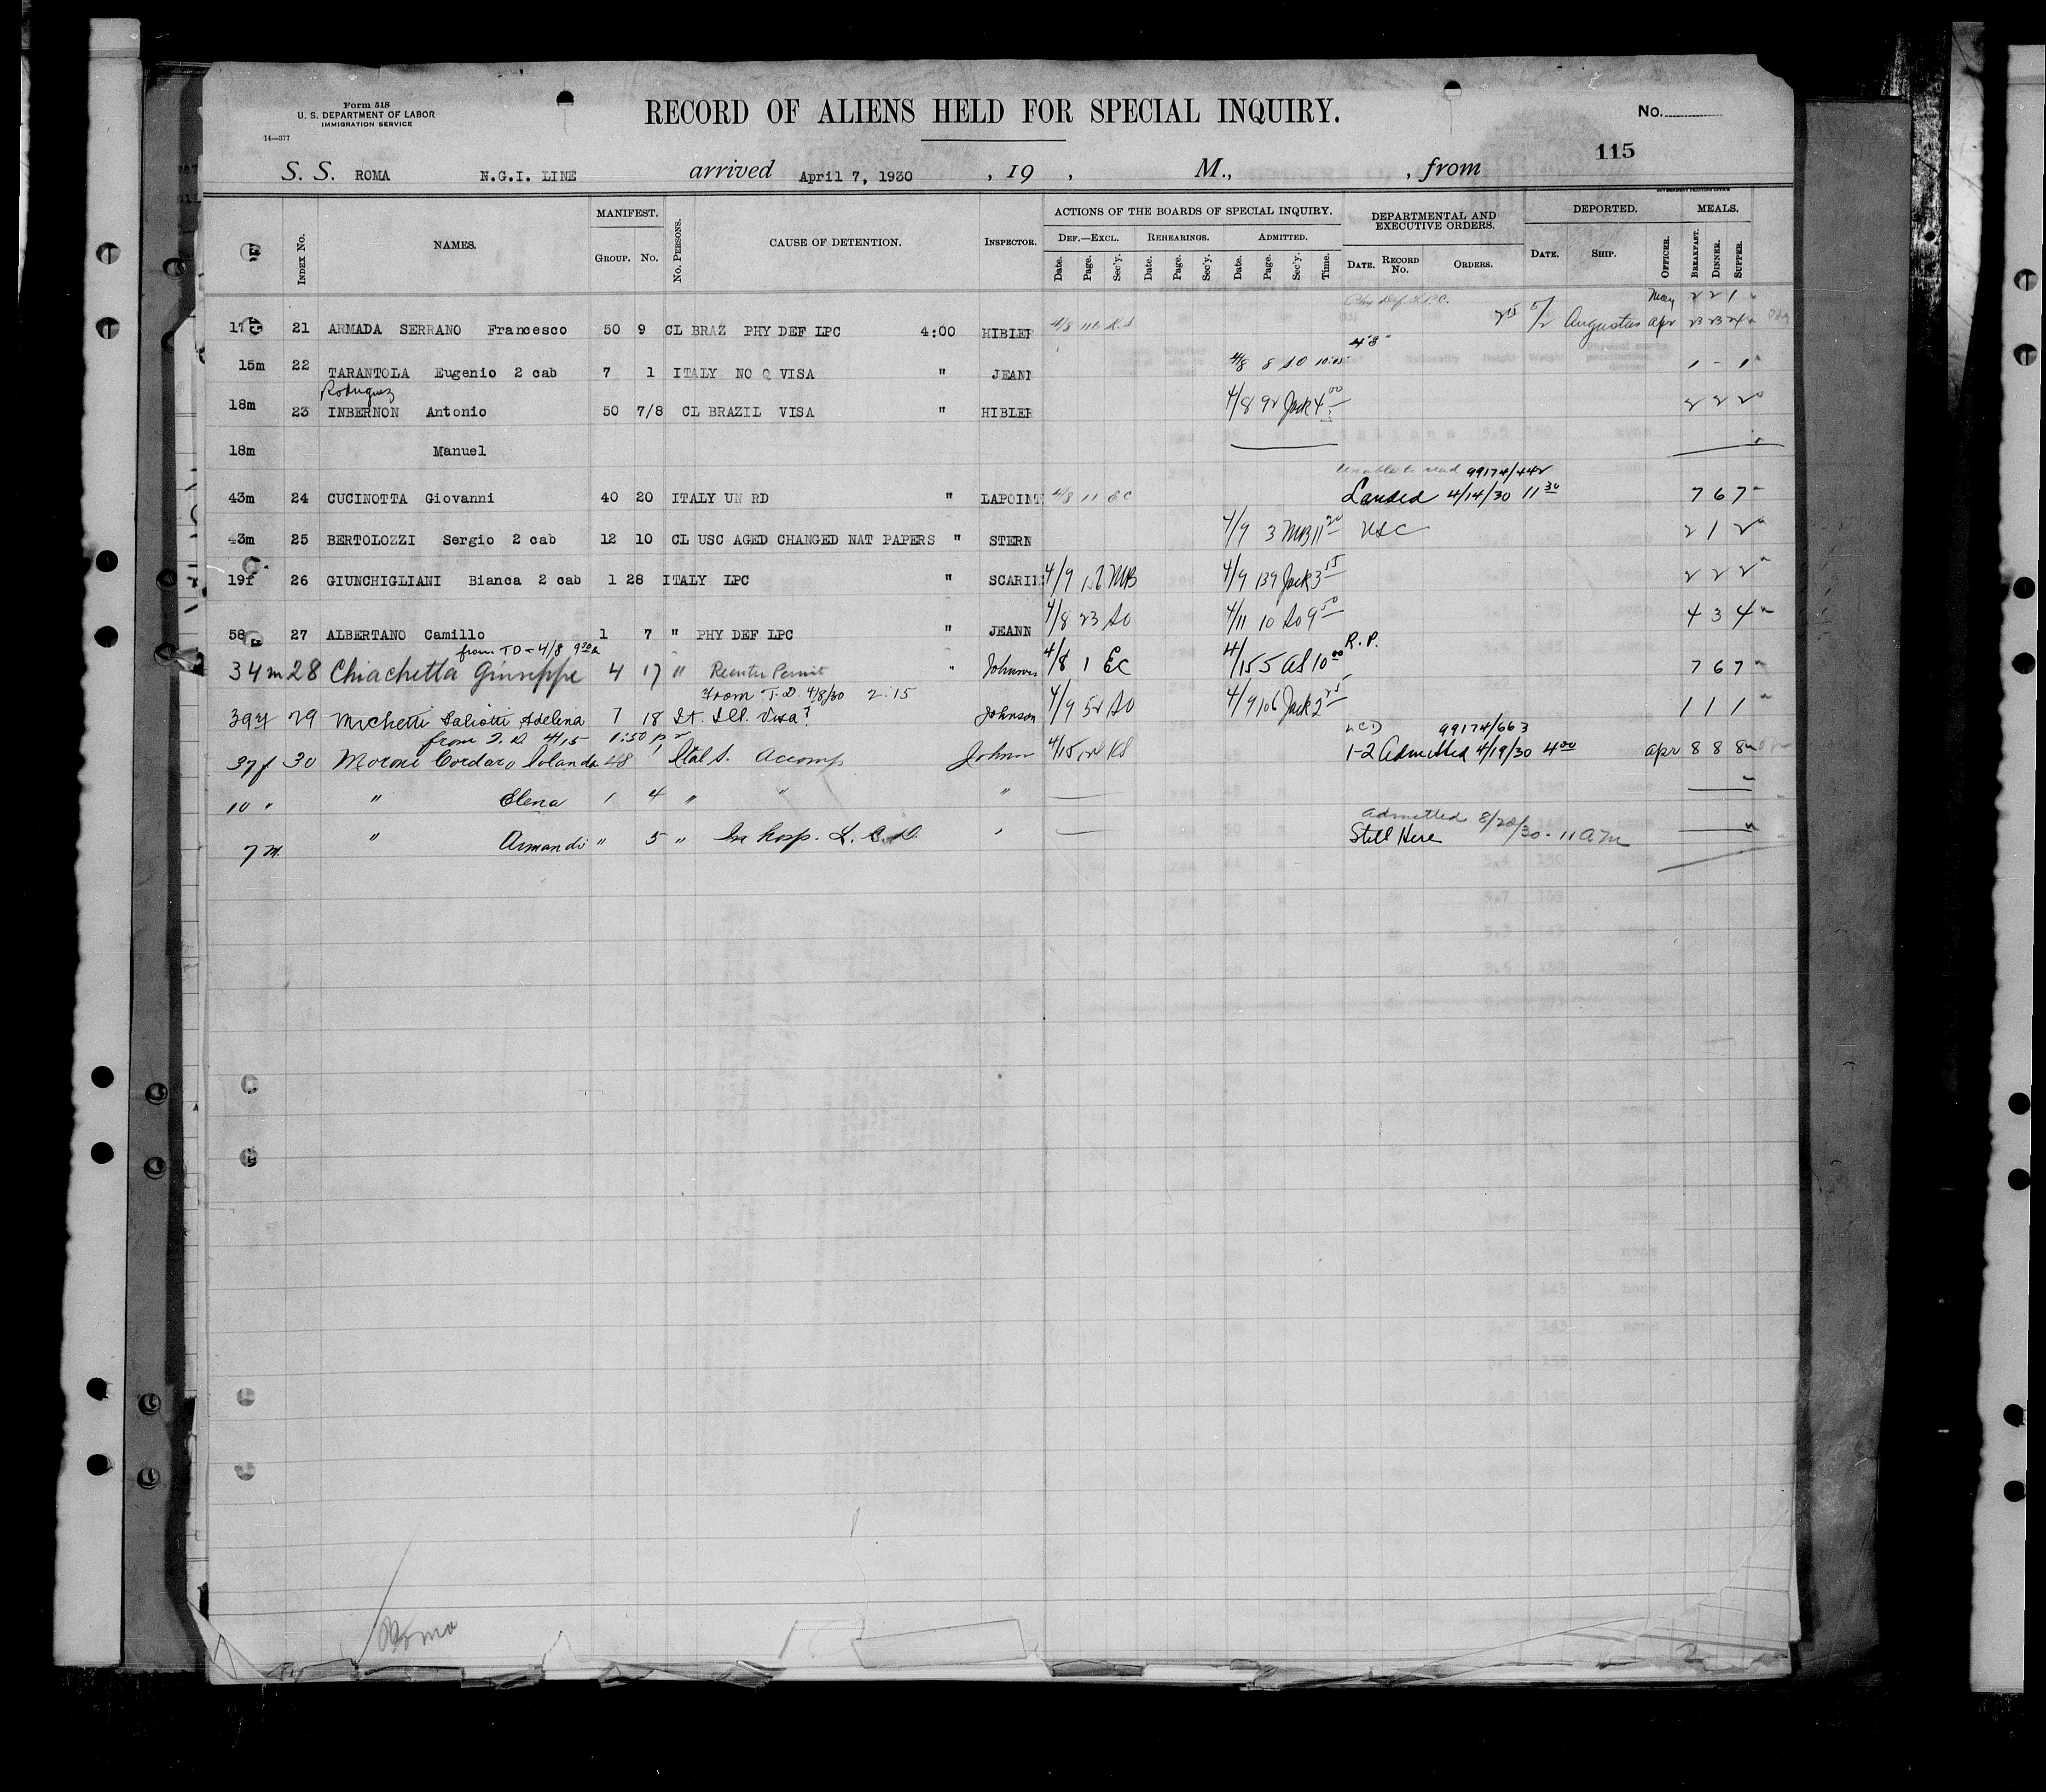 Form 518
U. S. DEPARTMENT OF LABOR
IMMIGRATION SERVICE
14—377
RECORD OF ALIENS HELD FOR SPECIAL INQUIRY.
No.
115
S. S. ROMA N.G.I. LINE arrived April 7, 1930 , 19 , M., , from
GOVERNMENT PRINTING OFFICE
INDEX No. NAMES. MANIFEST. GROUP. No. No. PERSONS. CAUSE OF DETENTION. INSPECTOR.
ACTIONS OF THE BOARDS OF SPECIAL INQUIRY. DEF.—EXCL. REHEARINGS. ADMITTED.
Date. Page. Sec'y. Date. Page. Sec'y. Date. Page. Sec'y. Time.
DEPARTMENTAL AND EXECUTIVE ORDERS. DATE. RECORD No. ORDERS.
DEPORTED. DATE. SHIP. OFFICER.
MEALS. BREAKFAST. DINNER. SUPPER.
Phy Def. L.P.C. May 2 2 1
17 21 ARMADA SERRANO Francesco 50 9 CL BRAZ PHY DEF LPC 4:00 HIBLER 4/8 116 5/2 Augustus Apr 23 23 24
4'8"
15m 22 TARANTOLA Eugenio 2 cab 7 1 ITALY NO Q VISA " JEANN 4/8 8 SO 1 - 1
Rodriguez
18m 23 INBERNON Antonio 50 7/8 CL BRAZIL VISA " HIBLER 4/8 92 Jack 4 00 2 2 2
18m Manuel
Unable to read 99174/442
43m 24 CUCINOTTA Giovanni 40 20 ITALY UN RD " LAPOINT 4/8 11 EC Landed 4/14/30 11 30 7 6 7
43m 25 BERTOLOZZI Sergio 2 cab 12 10 CL USC AGED CHANGED NAT PAPERS " STERN 4/9 3 MB 11 20 USC 2 1 2
19f 26 GIUNCHIGLIANI Bianca 2 cab 1 28 ITALY LPC " SCARIN 4/9 MB 4/9 139 Jack 3 15 2 2 2
58 27 ALBERTANO Camillo 1 7 " PHY DEF LPC " JEANN 4/8 23 SO 4/11 10 SO 9 50 4 3 4
from TD - 4/8 9 30 a
34m 28 Chiachetta Giuseppe 4 17 " Reenter Permit " Johnson 4/8 1 EC 4/15 5 10 00 R.P. 7 6 7
From T.D. 4/8/30 2:15
39 29 Michetti Adelina 7 18 It. Ill. Visa? Johnson 4/9 52 SO 4/9 106 Jack 2 25 1 1 1
from T.D. 4/15 1:50 p
LCD 99174/663
37f 30 Moroni Cordaro Iolanda 48 1 Ital S. Accomp Johnson 4/15 1-2 Admitted 4/19/30 4 00 Apr 8 8 8
10 " " Elena 1 4 " " "
Admitted 8/20/30 - 11 AM
7 m. " Armando " 5 " In hosp. L.C.D. Still Here
Roma
2